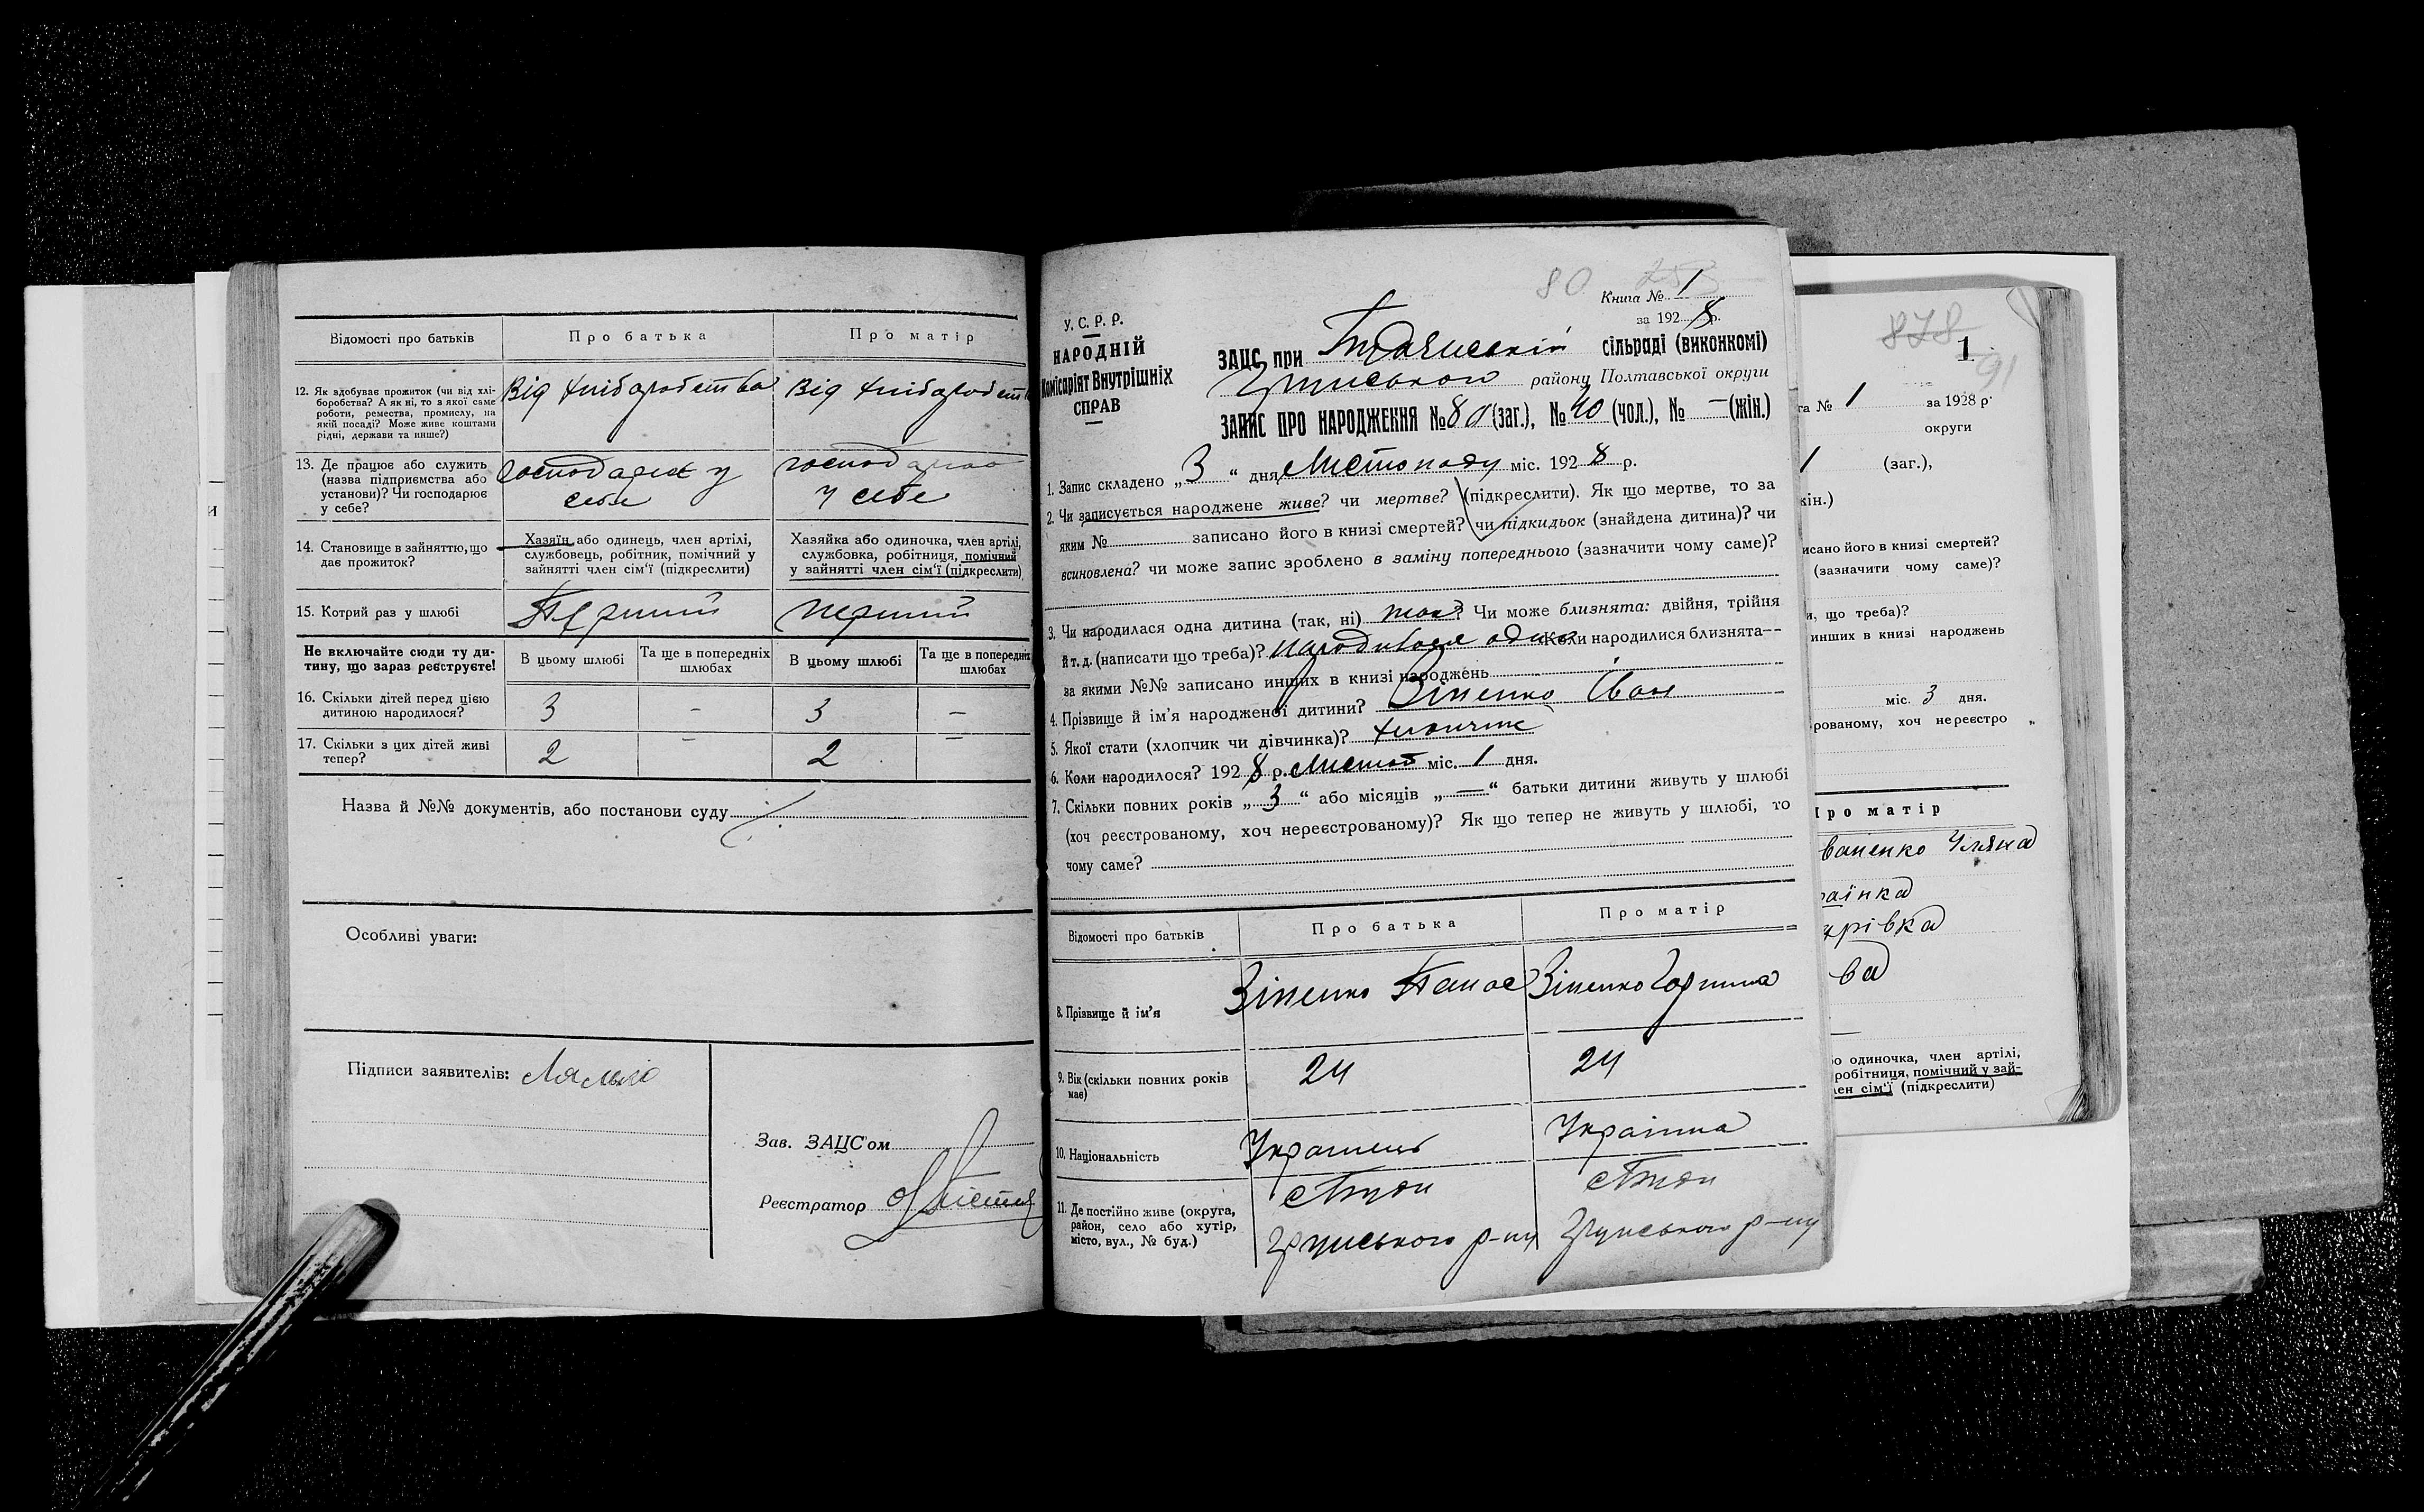 Відомості про батьків
Про батька
Про матір
12. Як здобуває прожиток (чи від хлі-
боробства? А як ні, то з якої саме
роботи, ремества, промислу, на
якій посаді? Може живе коштами
рідні, держави та инше?)
Від хліборобства
Від хлібороб
13. Де працює або служить
(назва підприємства або
установи)? Чи господарює
у себе?
господарює у
себе
господарює
у себе
14. Становище в зайняттю, що
дає прожиток?
Хазяїн або одинець, член артілі,
службовець, робітник, помічний у
зайнятті член сім'ї (підкреслити)
Хазяйка або одиночка, член артілі,
службовка, робітниця, помічний
у зайнятті член сім'ї (підкреслити)
15. Котрий раз у шлюбі
Перший
перший
Не включайте сюди ту ди-
тину, що зараз реєструєте!
В цьому шлюбі
Та ще в попередніх
шлюбах
В цьому шлюбі
Та ще в попередніх
шлюбах
16. Скільки дітей перед цією
дитиною народилося?
3 – 3 –
17. Скільки з цих дітей живі
тепер?
2 – 2 –
Назва й №№ документів, або постанови суду
Особливі уваги:
Підписи заявителів:
Зав. ЗАЦС'ом
Реєстратор
80
Книга № 1
за 1928 р.
У. С. Р. Р.
НАРОДНІЙ
Комісаріят Внутрішніх
СПРАВ
ЗАЦС при сільраді (виконкомі)
району Полтавської округи
ЗАПИС ПРО НАРОДЖЕННЯ № 80 (заг.), № 40 (чол.), № – (жін.)
1. Запис складено „3" дня Листопаду міс. 1928 р.
2. Чи записується народжене живе? чи мертве? (підкреслити). Як що мертве, то за
яким № записано його в книзі смертей? чи підкидьок (знайдена дитина)? чи
всиновлена? чи може запис зроблено в заміну попереднього (зазначити чому саме)?
3. Чи народилася одна дитина (так, ні) так? Чи може близнята: двійня, трійня
й т. д. (написати що треба)? народилося одно Коли народилися близнята--
за якими №№ записано инших в книзі народжень
4. Прізвище й ім'я народженої дитини? Зіненко Іван
5. Якої стати (хлопчик чи дівчинка)? хлопчик
6. Коли народилося? 1928 р. Листоп міс. 1 дня.
7. Скільки повних років „3" або місяців „—" батьки дитини живуть у шлюбі
(хоч реєстрованому, хоч нереєстрованому)? Як що тепер не живуть у шлюбі, то
чому саме?
Відомості про батьків
Про батька
Про матір
8. Прізвище й ім'я
Зіненко Панас
Зіненко Горпина
9. Вік (скільки повних років
має)
24
24
10. Національність
Українець
Українка
11. Де постійно живе (округа,
район, село або хутір,
місто, вул., № буд.)
Грунського р-ну
Грунського р-ну
878
1
91
га № 1 за 1928 р.
округи
1 (заг.),
кін.)
исано його в книзі смертей?
(зазначити чому саме)?
и, що треба)?
инших в книзі народжень
міс. 3 дня.
рованому, хоч нереєстро
Про матір
ваненко Уляна
раїнка
арівка
ва
бо одиночка, член артілі,
робітниця, помічний у зай-
лен сім'ї (підкреслити)